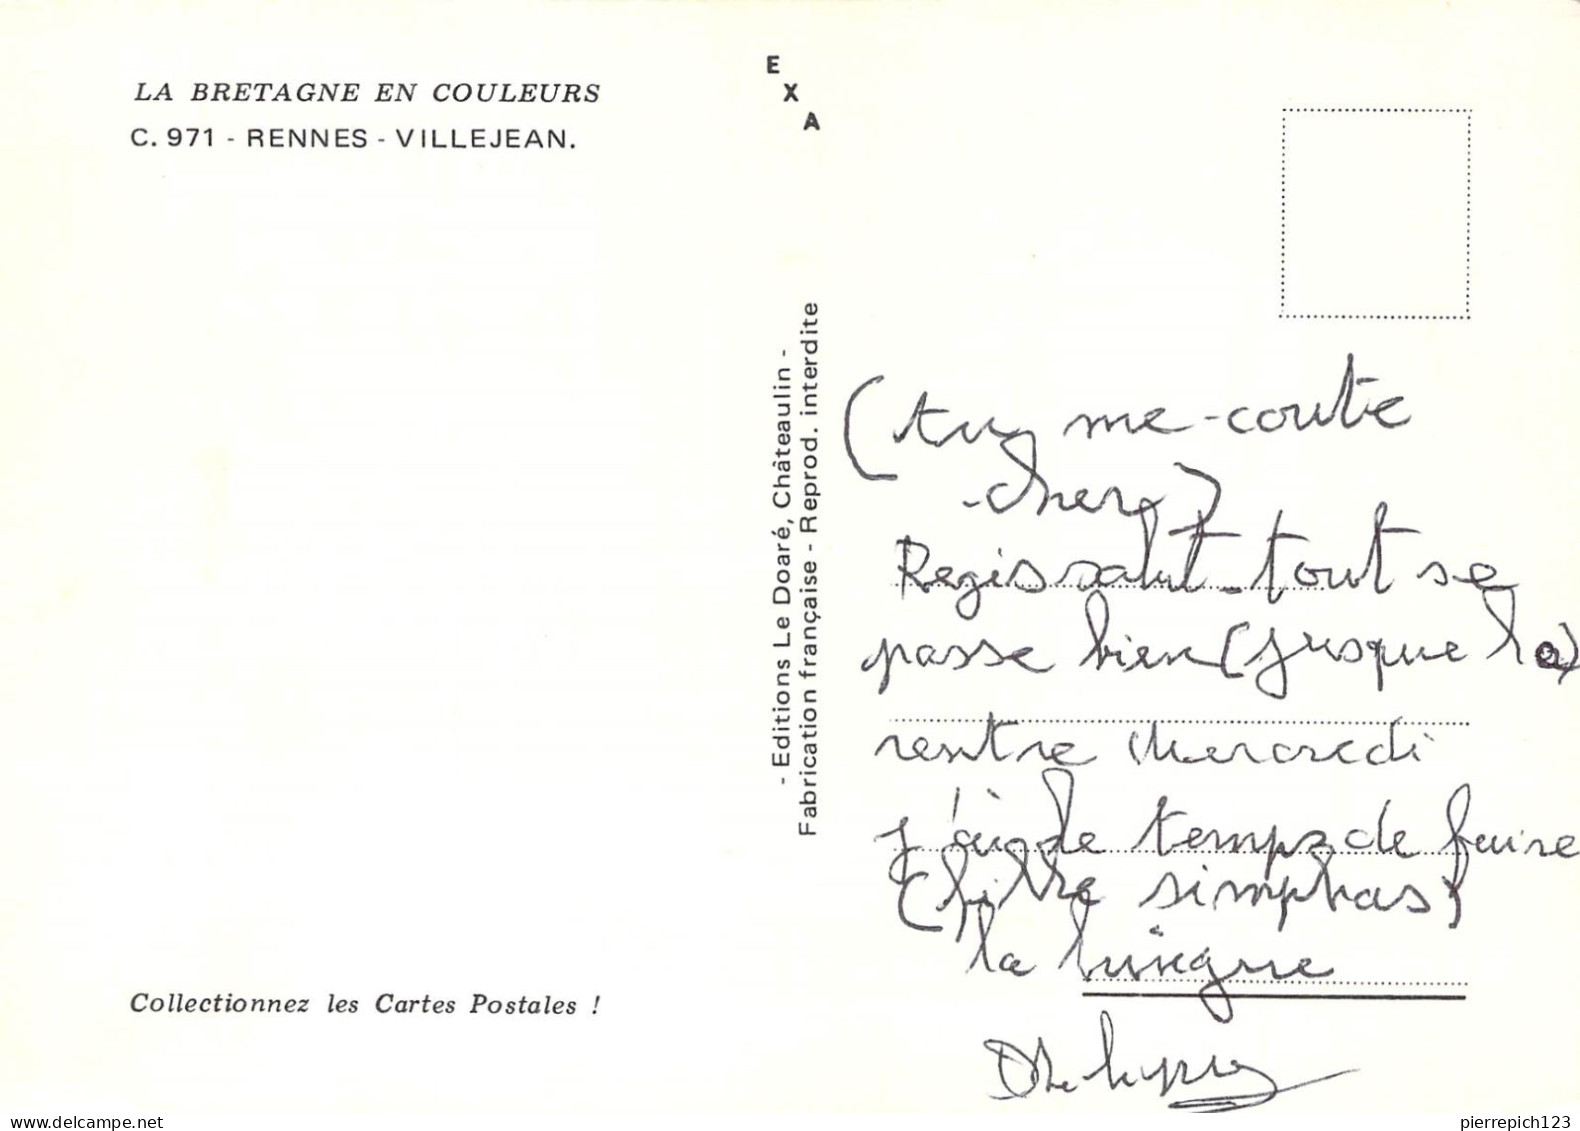 LA BRETAGNE EN COULEURS
C. 971 - RENNES - VILLEJEAN.
E
X
A
- Editions Le Doaré, Châteaulin -
Fabrication française - Reprod. interdite
(tu me-coute
-cher)
Regis salut-tout se
passe bien (jusque la)
rentre Mercredi
j'ai le temps de faire
simphas)
la
Collectionnez les Cartes Postales !
delcampe.net
pierrepich123